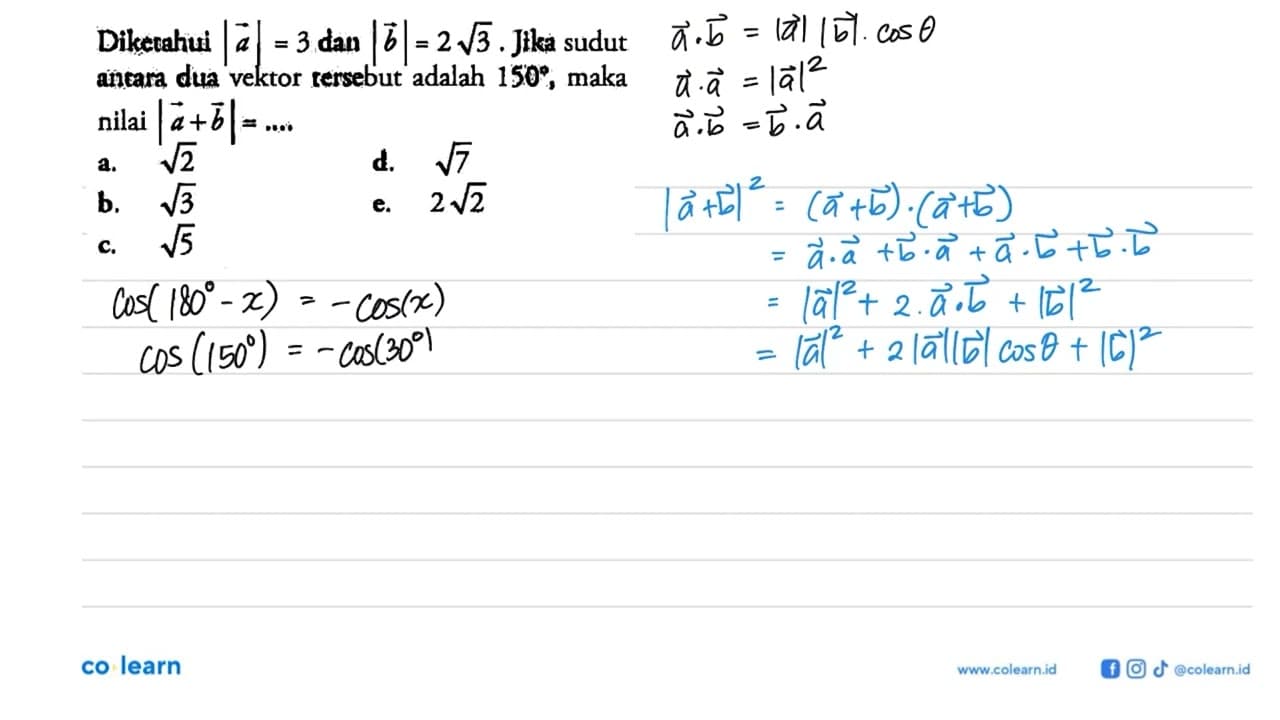 Diketahui |a⃗| = 3 dan |b⃗| = 2√3. Jika sudut
antara dua vektor tersebut adalah 150°, maka
nilai |a⃗ + b⃗| = ....
a. √2 d. √7
b. √3 e. 2√2
c. √5
cos(180° - x) = -cos(x)
cos(150°) = -cos(30°)
a⃗.b⃗ = |a⃗| |b⃗|. cos θ
a⃗.a⃗ = |a⃗|²
a⃗.b⃗ = b⃗.a⃗
|a⃗+b⃗|² = (a⃗+b⃗).(a⃗+b⃗)
= a⃗.a⃗ + b⃗.a⃗ + a⃗.b⃗ + b⃗.b⃗
= |a⃗|² + 2.a⃗.b⃗ + |b⃗|²
= |a⃗|² + 2|a⃗||b⃗| cos θ + |b⃗|²
co learn
www.colearn.id @colearn.id